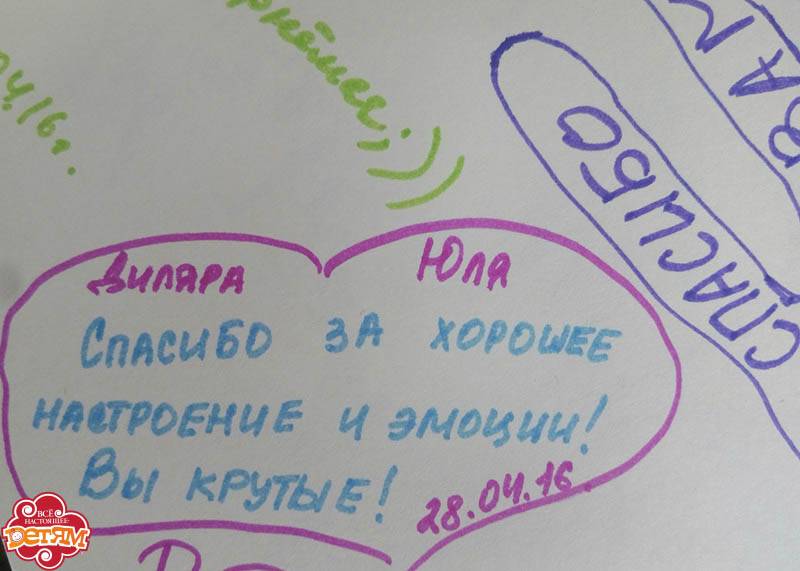 04.16г.
СПАСИБО
ВАМ
Диляра Юля
СПАСИБО ЗА ХОРОШЕЕ
НАСТРОЕНИЕ И ЭМОЦИИ!
ВЫ КРУТЫЕ!
28.04.16.
ВСЁ
НАСТОЯЩЕЕ
ДЕТЯМ